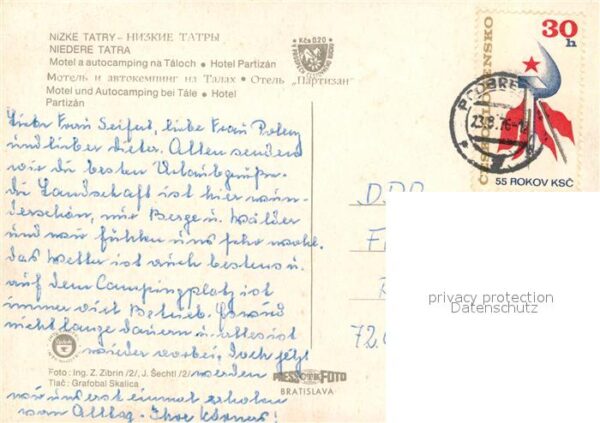 NÍZKE TATRY – НИЗКИЕ ТАТРЫ
NIEDERE TATRA
Motel a autocamping na Táloch • Hotel Partizán
Мотель и автокемпинг на Талах • Отель „Партизан"
Motel und Autocamping bei Tále • Hotel
Partizán
Kčs 0,20
ČESKOSLOVENSKO
30 h
55 ROKOV KSČ
23.8.76-12
Liebe Frau Seifert, liebe Frau
und lieber Dieter. Allen senden
wir die besten Urlaubsgrüße.
Die Landschaft ist hier wun-
derschön, nur Berge u. Wälder
und wir fühlen uns sehr wohl.
das Wetter ist auch bestens u.
auf dem Campingplatz ist
immer viel Betrieb. Es wird
nicht lange dauern u. alles ist
wieder vorbei. Doch jetzt
werden
wir uns erst einmal erholen
vom Alltag. Ihre
DDR
72
Foto: Ing. Z. Zibrin /2/, J. Šechtl /2/
Tlač: Grafobal Skalica
PRESSFOTO
BRATISLAVA
privacy protection
Datenschutz